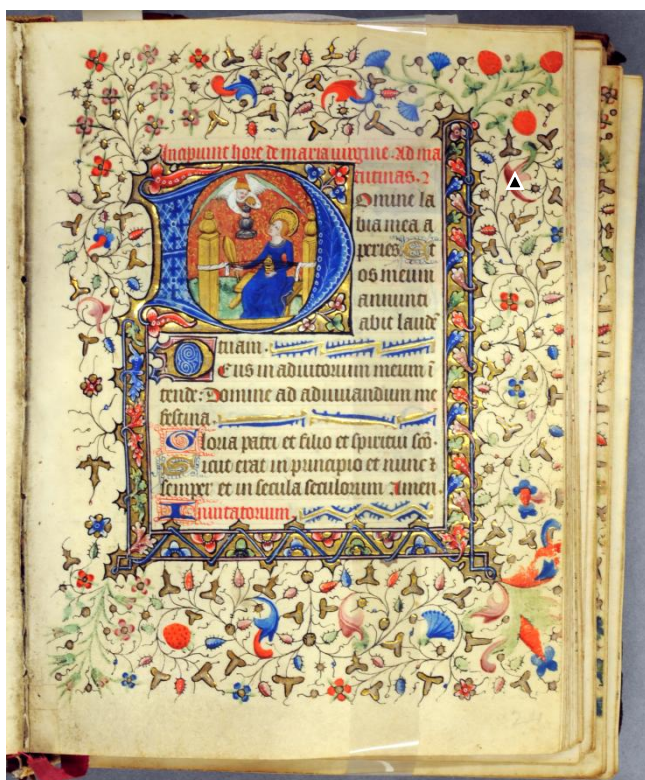 Incipiunt hore de maria uirgine. Ad ma
tutinas. 2
Domine la
bia mea a
peries. Et
os meum
annunti
abit laudē
tuam.
Deus in adiutorium meum ī
tende: Domine ad adiuuandum me
festina.
Gloria patri et filio et spiritui scō.
Sicut erat in principio et nunc ⁊
semper et in secula seculorum Amen.
Inuitatorium.